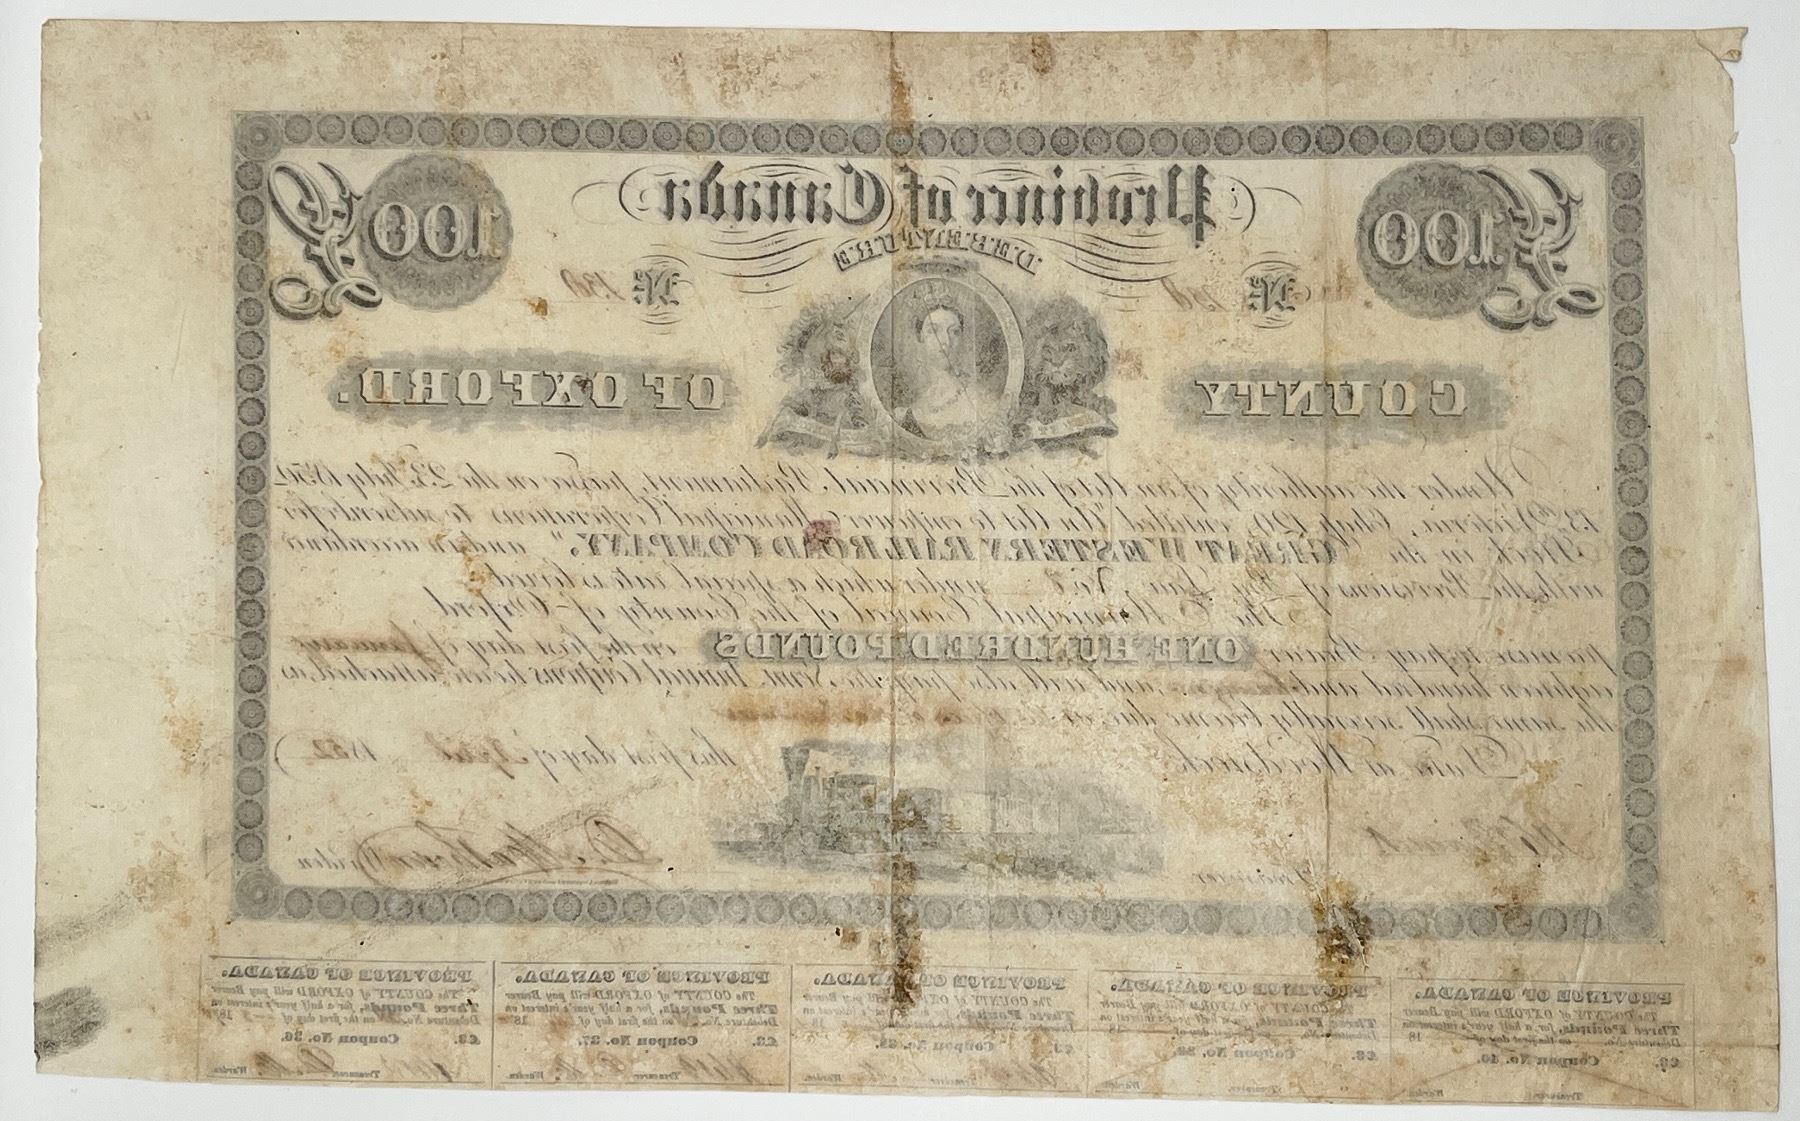 Province of Canada
DEBENTURE
£100 £100
No. 130 No. 130
COUNTY OF OXFORD.
Under the authority of an Act of the Provincial Parliament, passed on the 23d July 1850
13th Victoria, Chap. 129, entitled "An Act to empower Municipal Corporations to subscribe for
Stock in the GREAT WESTERN RAILROAD COMPANY," and in accordance
with the Provisions of By Law No. under which a special rate is levied.
The Municipal Council of the County of Oxford
promise to pay Bearer ONE HUNDRED POUNDS on the first day of January
eighteen hundred and and will also pay the Semi Annual Coupons hereto attached as
the same shall severally become due
Dated at Woodstock this first day of April 1852
Treasurer Warden
PROVINCE OF CANADA.
The COUNTY of OXFORD will pay Bearer
Three Pounds, for a half year's interest on
Debenture No. on the first day of 18
£3. Coupon No. 40.
Treasurer Warden
PROVINCE OF CANADA.
The COUNTY of OXFORD will pay Bearer
Three Pounds, for a half year's interest on
Debenture No. on the first day of 18
£3. Coupon No.
Treasurer Warden
PROVINCE OF CANADA.
The COUNTY of OXFORD will pay Bearer
Three Pounds, for a half year's interest on
Debenture No. on the first day of 18
£3. Coupon No.
Treasurer Warden
PROVINCE OF CANADA.
The COUNTY of OXFORD will pay Bearer
Three Pounds, for a half year's interest on
Debenture No. on the first day of 18
£3. Coupon No. 37.
Treasurer Warden
PROVINCE OF CANADA.
The COUNTY of OXFORD will pay Bearer
Three Pounds, for a half year's interest on
Debenture No. on the first day of 18
£3. Coupon No. 36.
Treasurer Warden